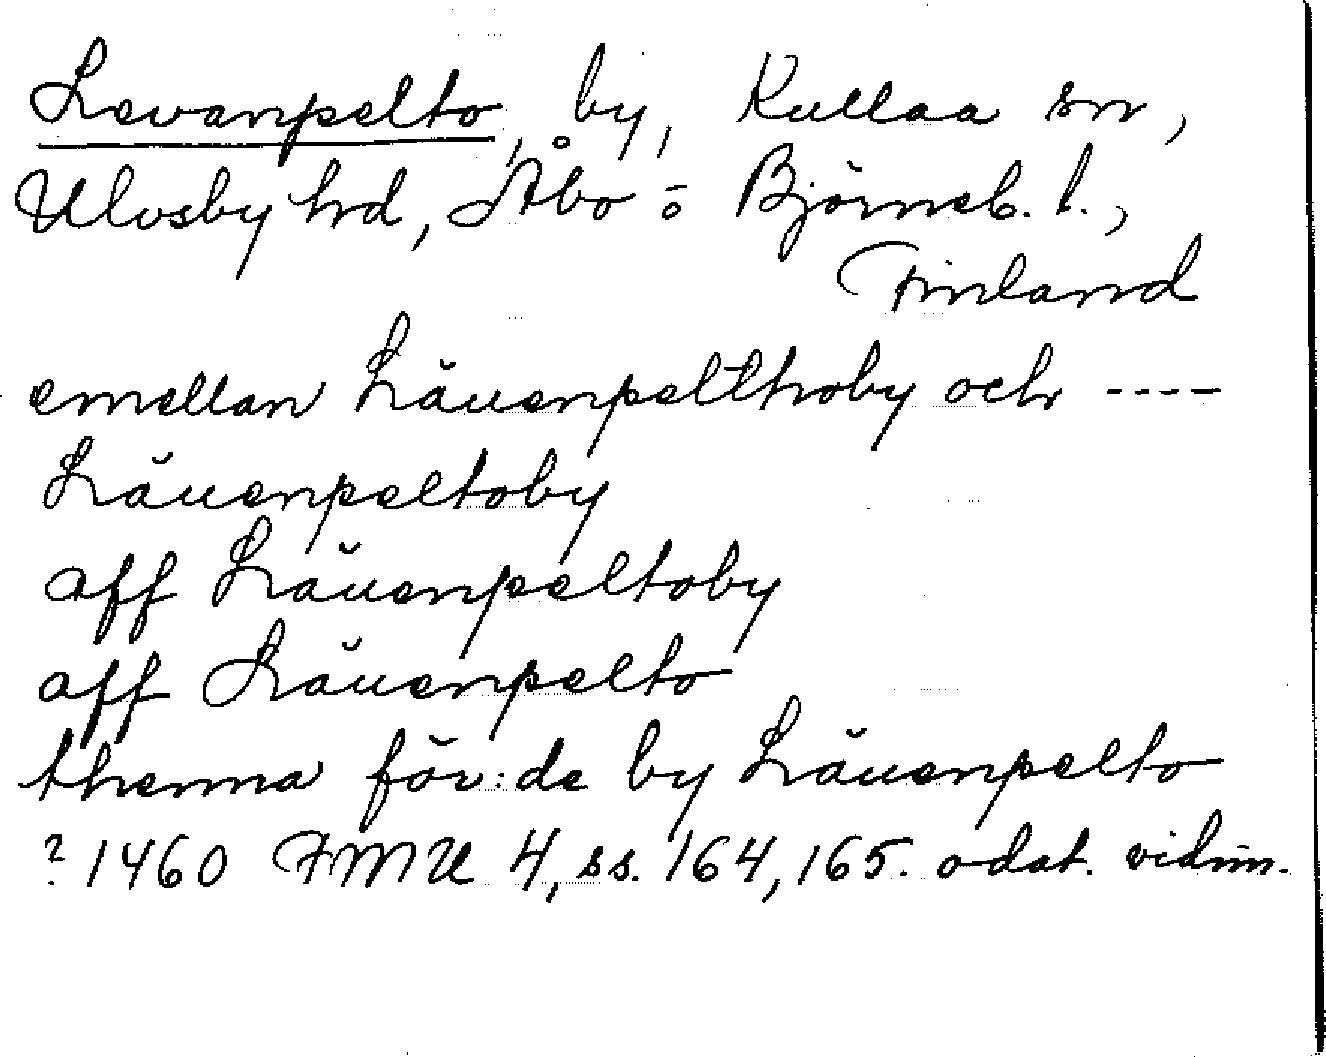 Levanpelto, by, Kullaa sn,
Ulvsby hd, Åbo o Björneb. l.,
Finland
emellan Läuenpelthoby och ----
Läuenpeltoby
aff Läuenpeltoby
aff Läuenpelto
thenna för:de by Läuenpelto
? 1460 FMU 4, ss. 164, 165. odat. vidim.